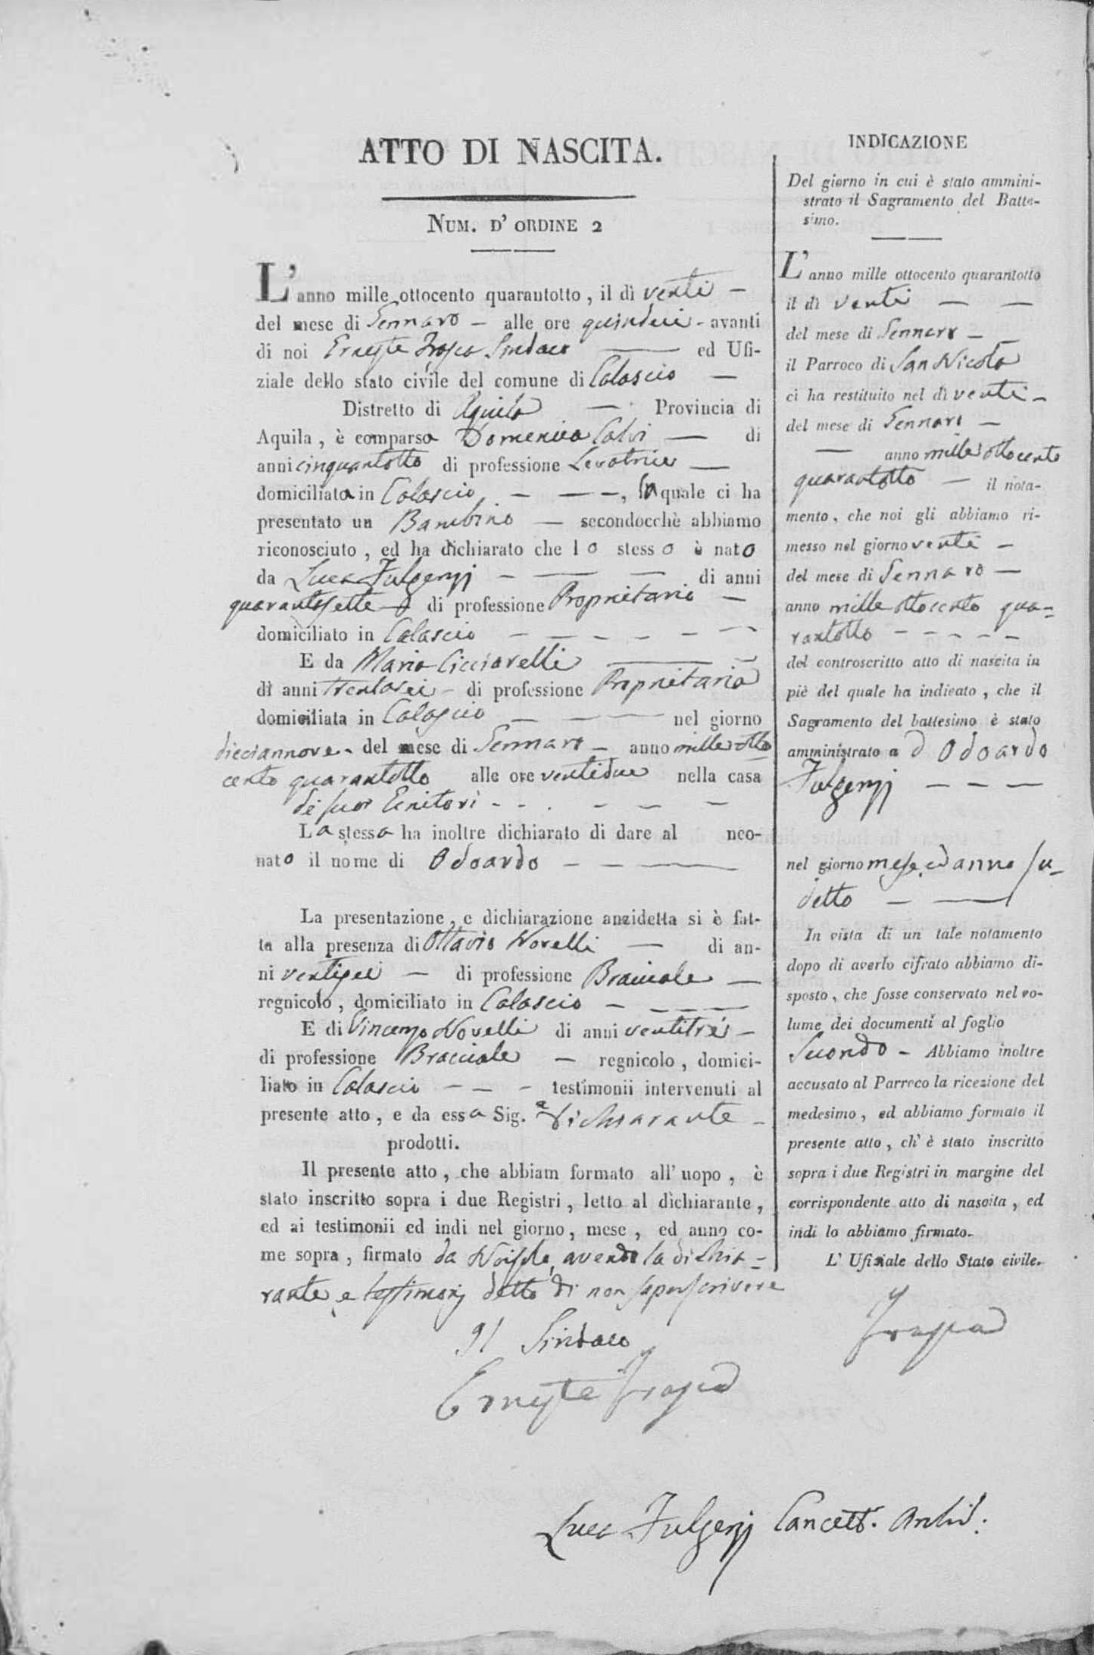 ATTO DI NASCITA.
NUM. D' ORDINE 2
L'anno mille ottocento quarantotto, il dì venti —
del mese di Gennaro — alle ore quindici - avanti
di noi Erneste Frasca Sindaco — ed Ufi-
ziale dello stato civile del comune di Calascio —
Distretto di Aquila — Provincia di
Aquila, è comparsa Domenica Calvi — di
anni cinquantotto di professione Levatrice —
domiciliata in Calascio — — —, la quale ci ha
presentato un Bambino — secondocchè abbiamo
riconosciuto, ed ha dichiarato che lo stesso è nato
da Luca Fulgenzj — — — di anni
quarantasette di professione Proprietario —
domiciliato in Calascio — — — — — —
E da Maria Cicciarelli —
di anni trentasei - di professione Proprietaria
domiciliata in Calascio — — — nel giorno
diecìannove - del mese di Gennaro — anno mille otto
cento quarantotto alle ore ventidue nella casa
di suoi Genitori - - . — — —
La stessa ha inoltre dichiarato di dare al neo-
nato il nome di Odoardo — — —
La presentazione, e dichiarazione anzidetta si è fat-
ta alla presenza di Ottavio Novelli — di an-
ni ventisei — di professione Bracciale —
regnicolo, domiciliato in Calascio — — — — —
E di Vincenzo Novelli di anni ventitrè —
di professione Bracciale — regnicolo, domici-
liato in Calascio — — - testimonii intervenuti al
presente atto, e da essa Sig.a dichiarante —
prodotti.
Il presente atto, che abbiam formato all' uopo, è
stato inscritto sopra i due Registri, letto al dichiarante,
ed ai testimonii ed indi nel giorno, mese, ed anno co-
me sopra, firmato da Noi solo, avendo la dichia=
rante e testimonj detto di non saper scrivere
Il Sindaco
Erneste Frasca
Luca Fulgenzj Cancell.
INDICAZIONE
Del giorno in cui è stato ammini-
strato il Sagramento del Batte-
simo.
L'anno mille ottocento quarantotto
il dì venti — —
del mese di Gennaro —
il Parroco di San Nicola
ci ha restituito nel dì venti —
del mese di Gennaro —
— anno mille ottocento
quarantotto — il nota-
mento, che noi gli abbiamo ri-
messo nel giorno venti —
del mese di Gennaro —
anno mille ottocento qua=
rantotto — — — — —
del controscritto atto di nascita in
piè del quale ha indicato, che il
Sagramento del battesimo è stato
amministrato a D Odoardo
Fulgenzj — — —
nel giorno mese, ed anno su-
detto — —
In vista di un tale notamento
dopo di averlo cifrato abbiamo di-
sposto, che fosse conservato nel vo-
lume dei documenti al foglio
Secondo - Abbiamo inoltre
accusato al Parroco la ricezione del
medesimo, ed abbiamo formato il
presente atto, ch' è stato inscritto
sopra i due Registri in margine del
corrispondente atto di nascita, ed
indi lo abbiamo firmato.
L' Ufiziale dello Stato civile.
Frasca